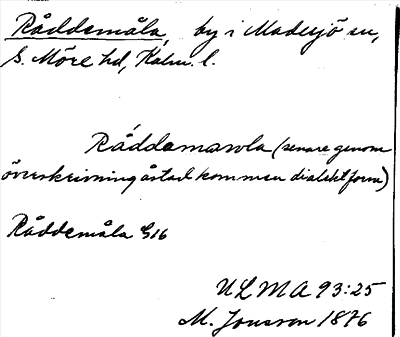 Råddemåla, by i Madesjö sn,
S. Möre hd, Kalm. l.
Råddamawla (senare genom
överskrivning åstadkommen dialektform)
Råddemåla G16
ULMA 93:25
M. Jonsson 1876